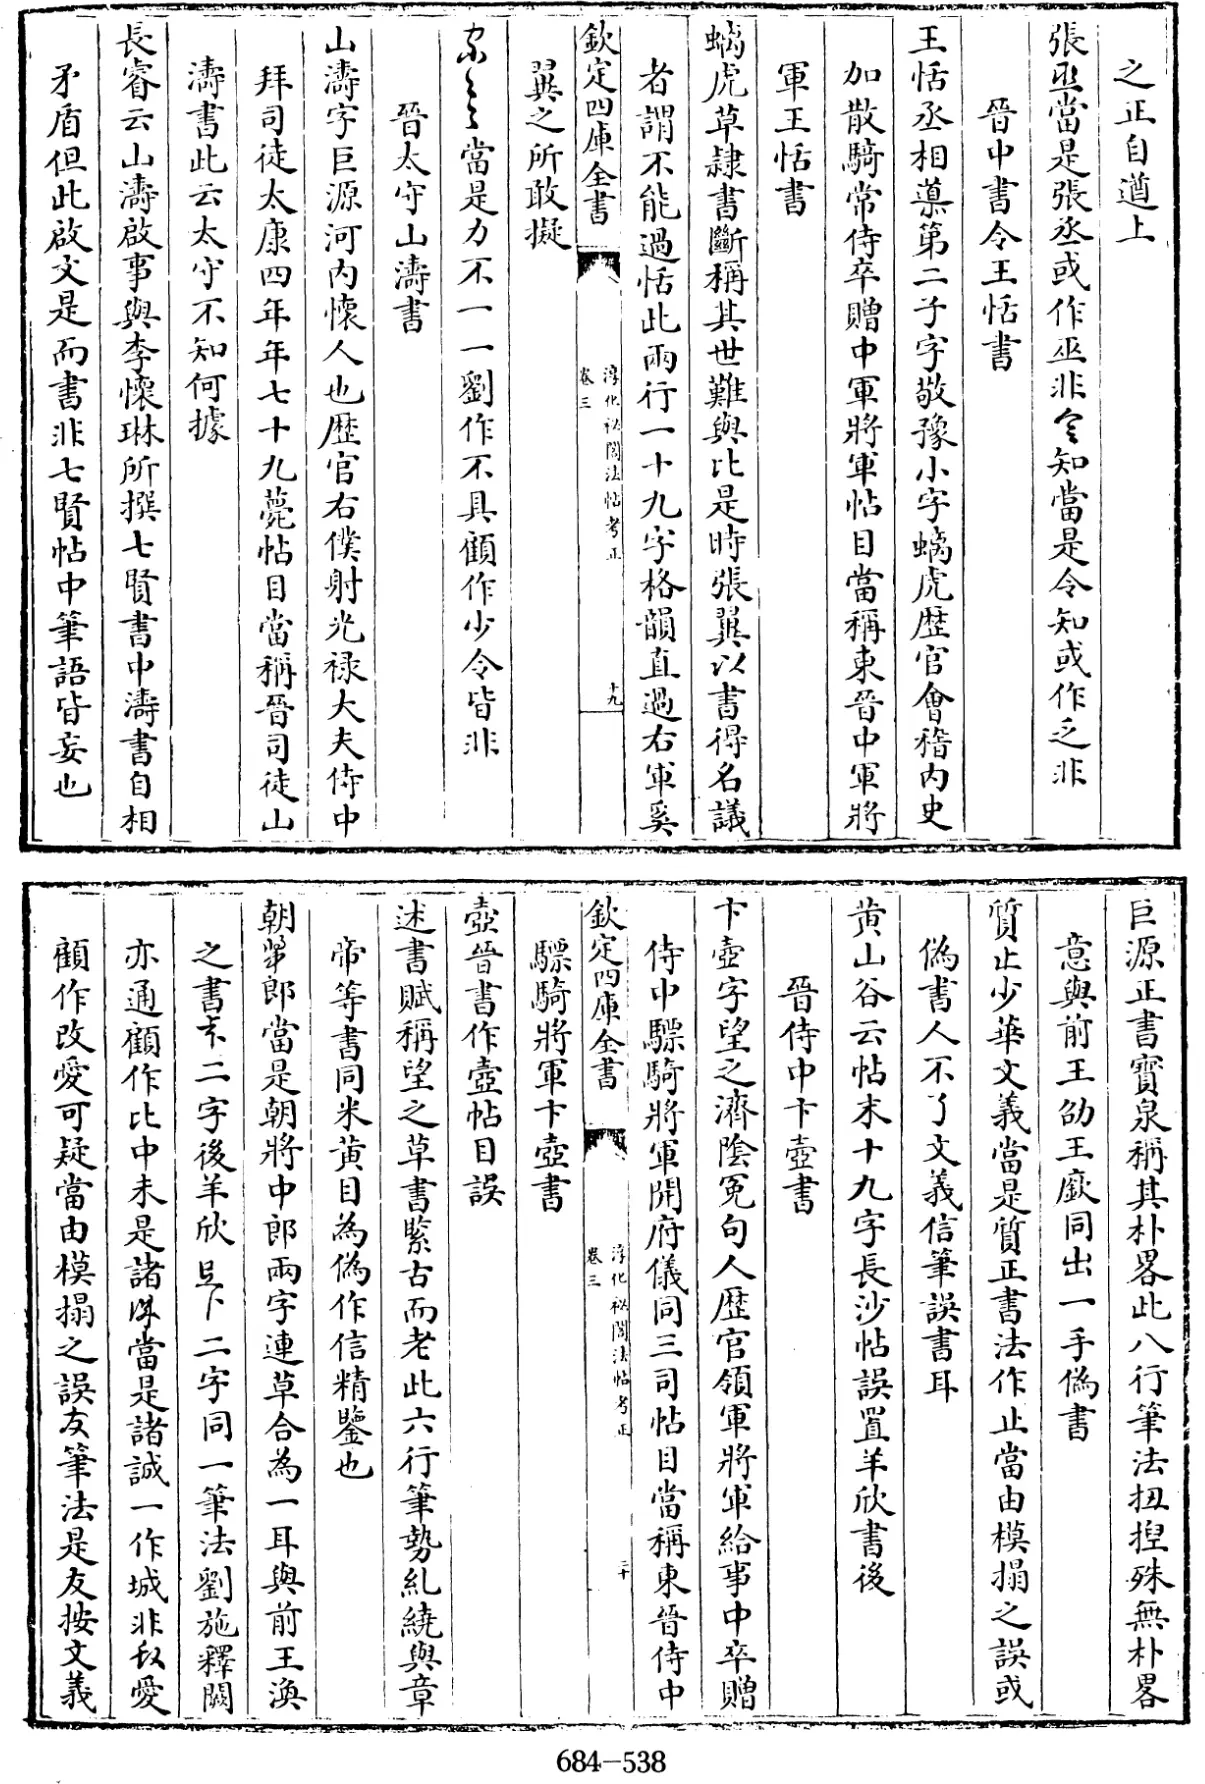 之正自遒上
張丞當是張丞或作巫非知當是令知或作乏非
晉中書令王恬書
王恬丞相導第二子字敬豫小字螭虎歴官會稽内史
加散騎常侍卒贈中軍將軍帖目當稱東晉中軍將
軍王恬書
螭虎草隷書斷稱其世難與比是時張翼以書得名議
者謂不能過恬此兩行一十九字格韻直過右軍奚
欽定四庫全書
淳化祕閣法帖考正
卷三
十九
翼之所敢擬
當是力不一一劉作不具顧作少令皆非
晉太守山濤書
山濤字巨源河内懐人也歴官右僕射光禄大夫侍中
拜司徒太康四年年七十九薨帖目當稱晉司徒山
濤書此云太守不知何據
長睿云山濤啟事與李懐琳所撰七賢書中濤書自相
矛盾但此啟文是而書非七賢帖中筆語皆妄也
巨源正書竇泉稱其朴畧此八行筆法扭揑殊無朴畧
意與前王劭王廞同出一手偽書
質止少華文義當是質正書法作止當由模搨之誤或
偽書人不了文義信筆誤書耳
黄山谷云帖末十九字長沙帖誤置羊欣書後
晉侍中卞壼書
卞壼字望之濟陰冤句人歴官領軍將軍給事中卒贈
侍中驃騎將軍開府儀同三司帖目當稱東晉侍中
欽定四庫全書
淳化祕閣法帖考正
卷三
二十
驃騎將軍卞壼書
壼晉書作壺帖目誤
述書賦稱望之草書緊古而老此六行筆勢糺繞與章
帝等書同米黄目為偽作信精鑒也
朝郎當是朝將中郎兩字連草合為一耳與前王渙
之書二字後羊欣二字同一筆法劉施釋闕
亦通顧作比中未是諸當是諸誠一作城非愛
顧作改愛可疑當由模搨之誤友筆法是友按文義
684-538